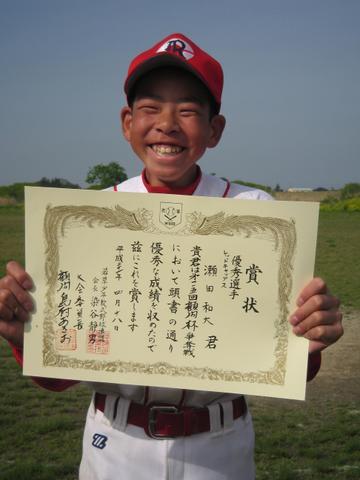 賞状
優秀選手
レッドキャップス
瀬田和大君
貴君は第二回顧問杯争奪戦
において頭書の通り
優秀な成績を収めたので
茲にこれを賞します
四月十八
会長 染谷静男
大会委員長
R